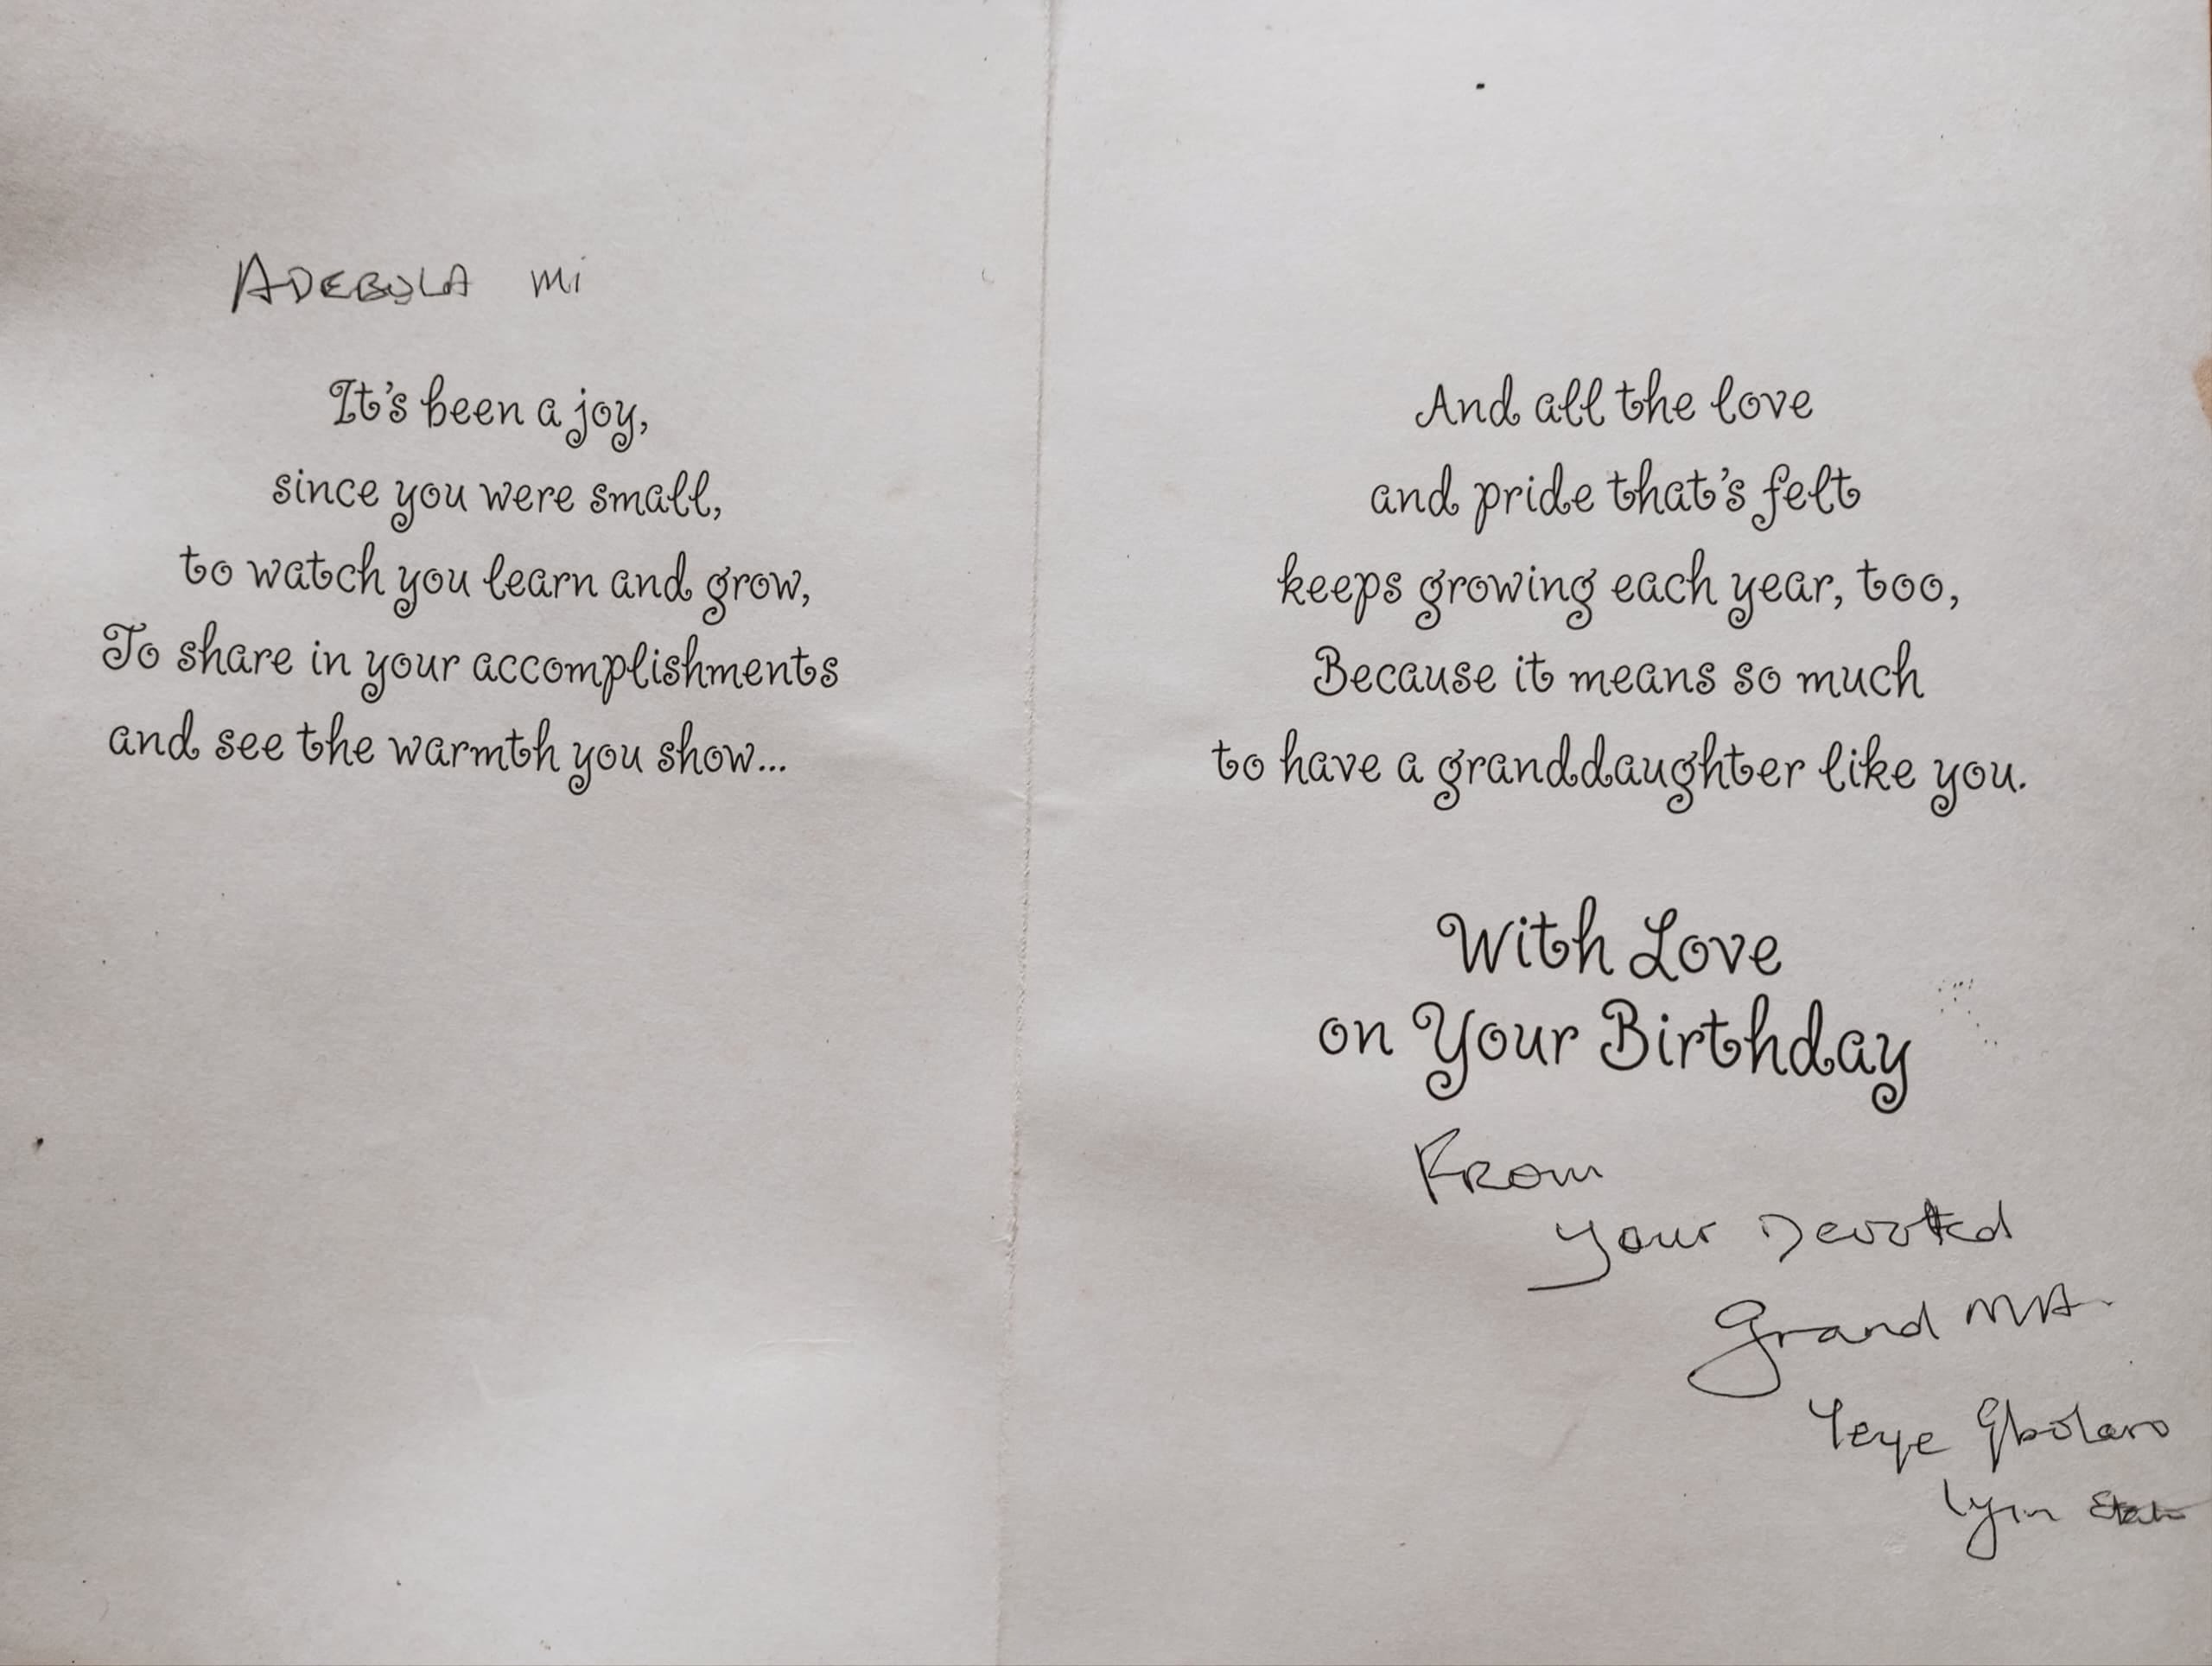 ADEBOLA mi
It's been a joy,
since you were small,
to watch you learn and grow,
To share in your accomplishments
and see the warmth you show...
And all the love
and pride that's felt
keeps growing each year, too,
Because it means so much
to have a granddaughter like you.
With Love
on Your Birthday
From
your Devoted
Grand MA
Yeye Gbolaro